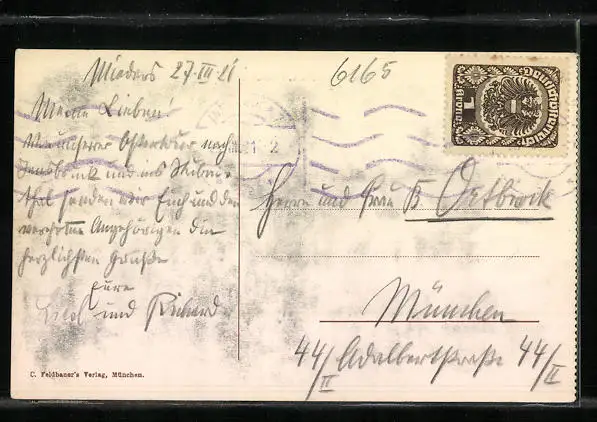 Mieders 27·III·21
Meine Lieben!
Von unserer Ostertour nach
Innsbruck und ins Stubai-
thal senden wir Euch und den
verehrten Angehörigen die
herzlichsten Grüße
Eure
und Richard
C. Feldbauer's Verlag, München.
6165
Deutschösterreich
1
Krone
Herrn und Frau B Oertbrock
München
44/II Adalbertstraße 44/II